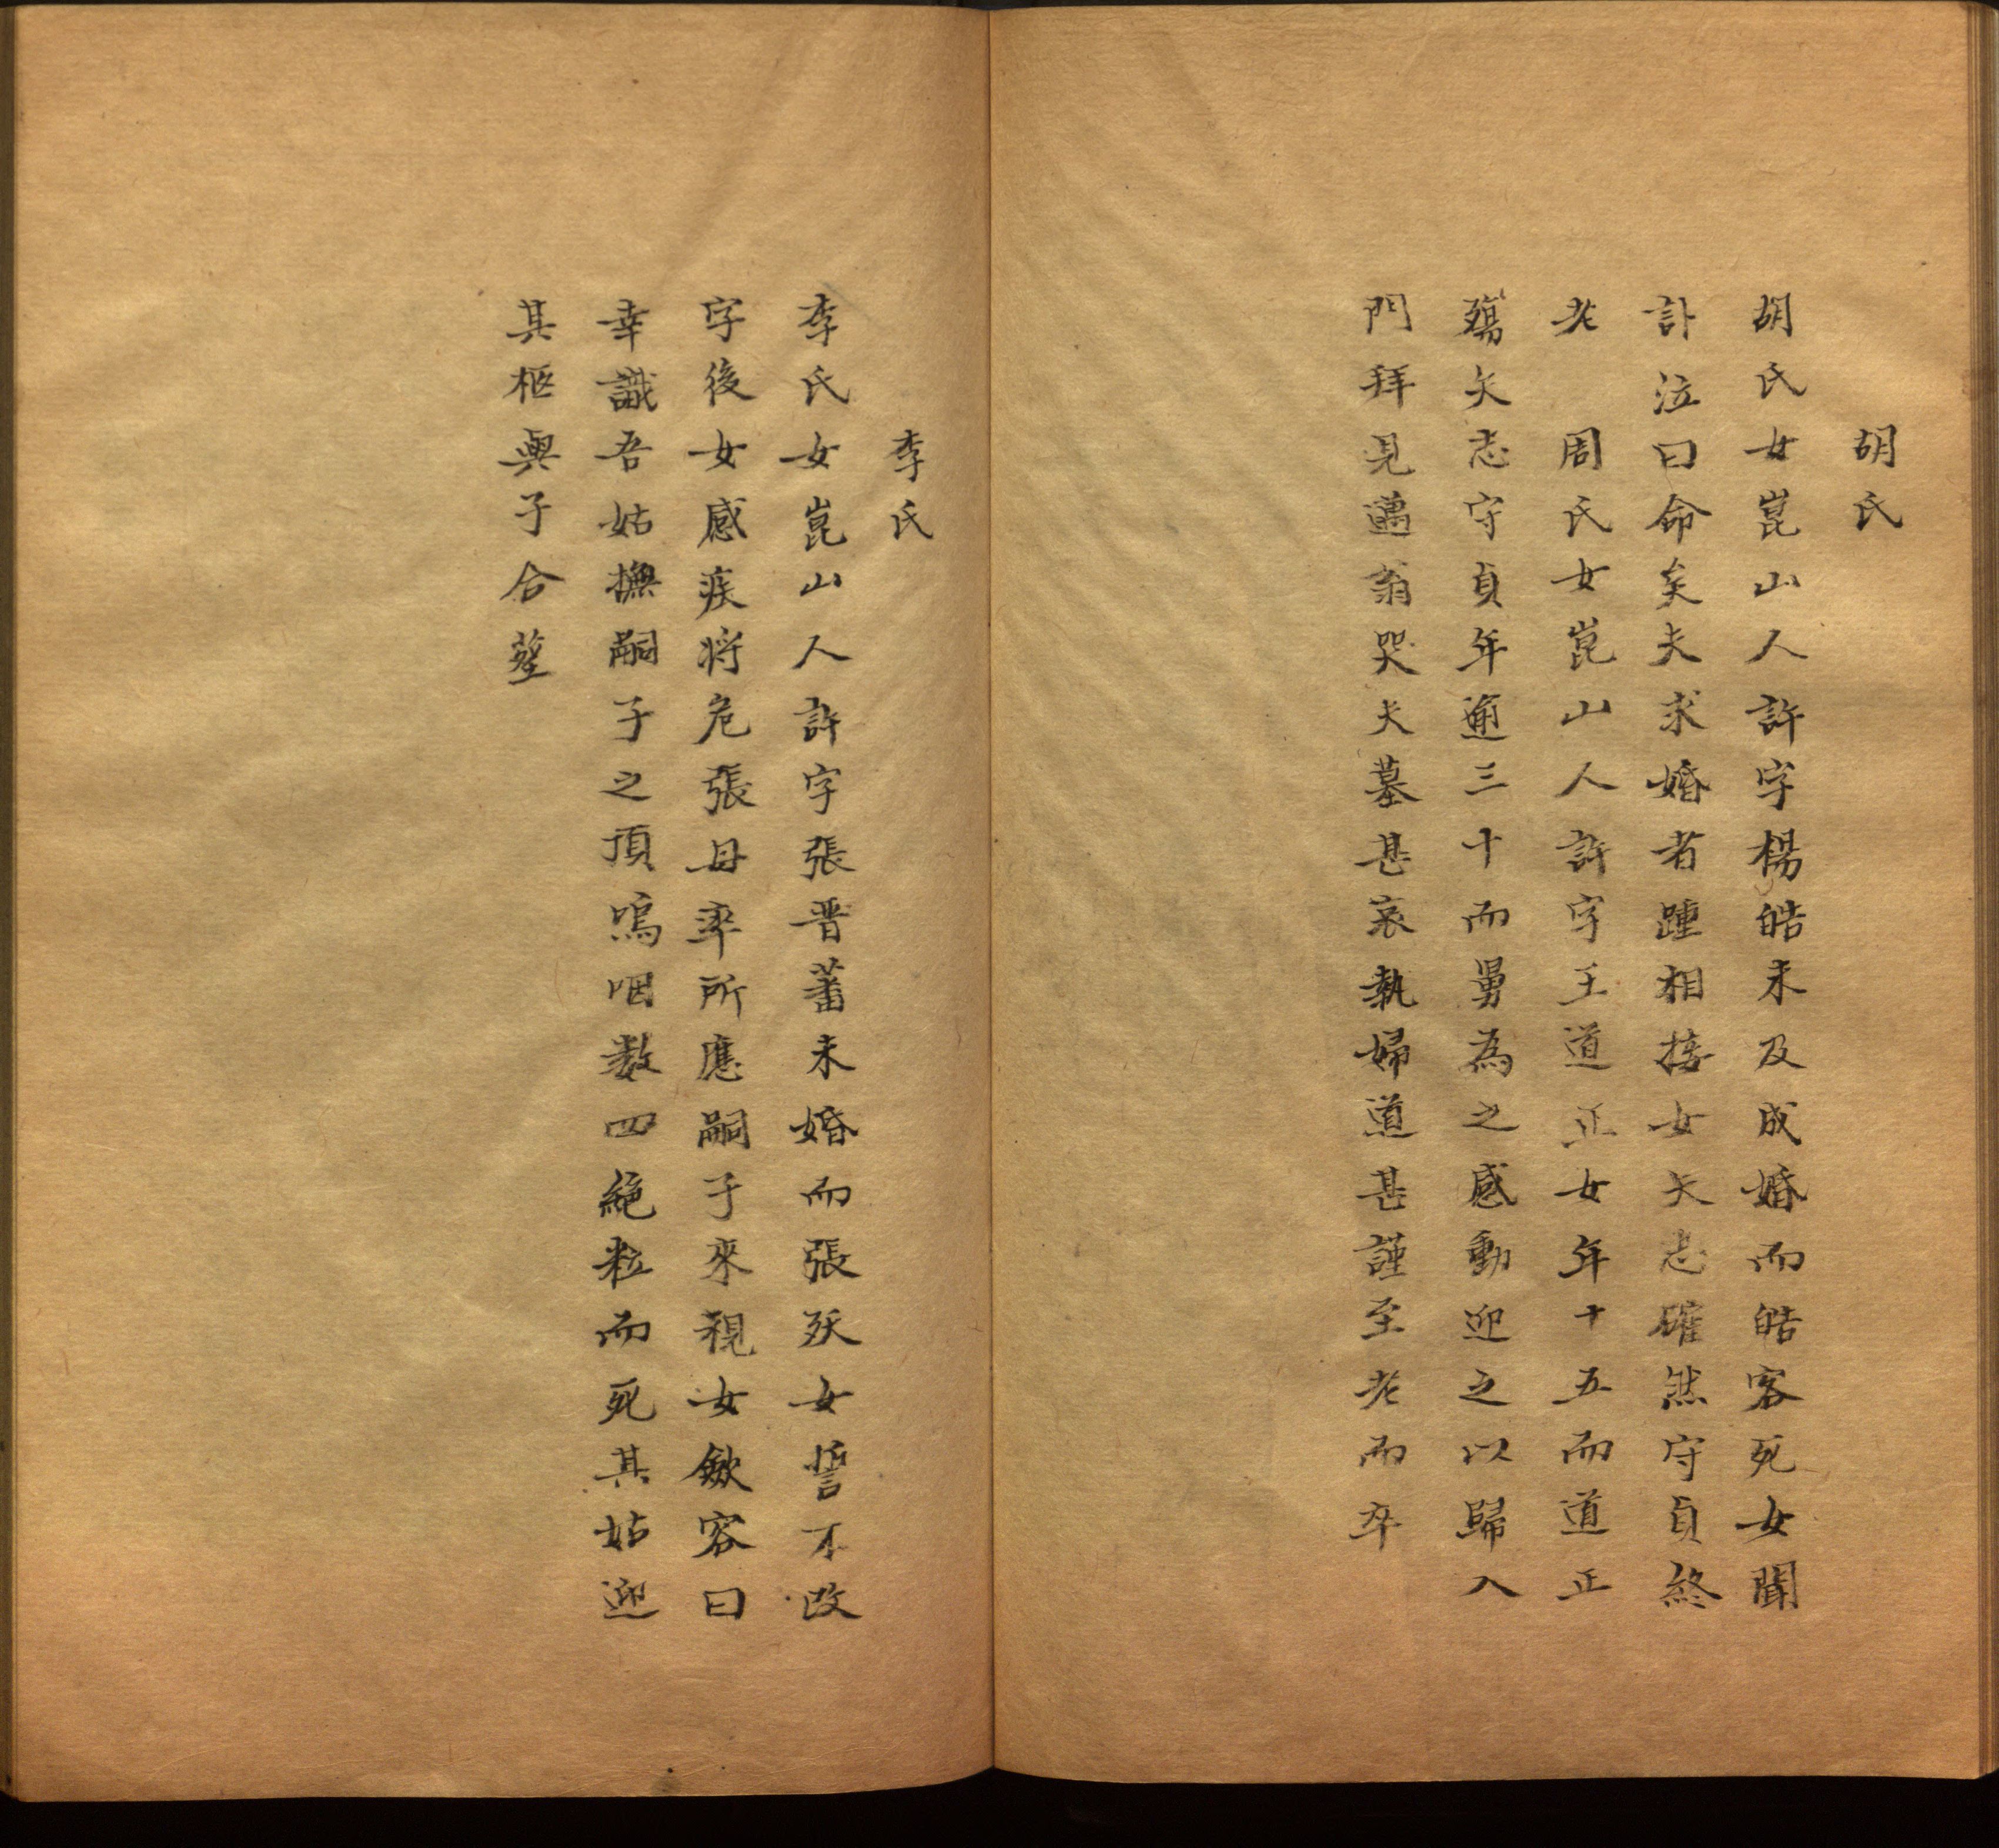 胡氏
胡氏女崑山人許字楊皓未及成婚而皓客死女聞
訃泣曰命矣夫求婚者踵相接女矢志確然守貞終
老　周氏女崑山人許字王道正女年十五而道正
殤矢志守貞年逾三十而舅為之感動迎之以歸入
門拜見邁翁哭夫墓甚哀執婦道甚謹至老而卒
李氏
李氏女崑山人許字張晋蕃未婚而張殀女誓不改
字後女感疾将危張母率所應嗣子來視女歛容曰
幸識吾姑撫嗣子之頂嗚咽数四絶粒而死其姑迎
其柩與子合塟